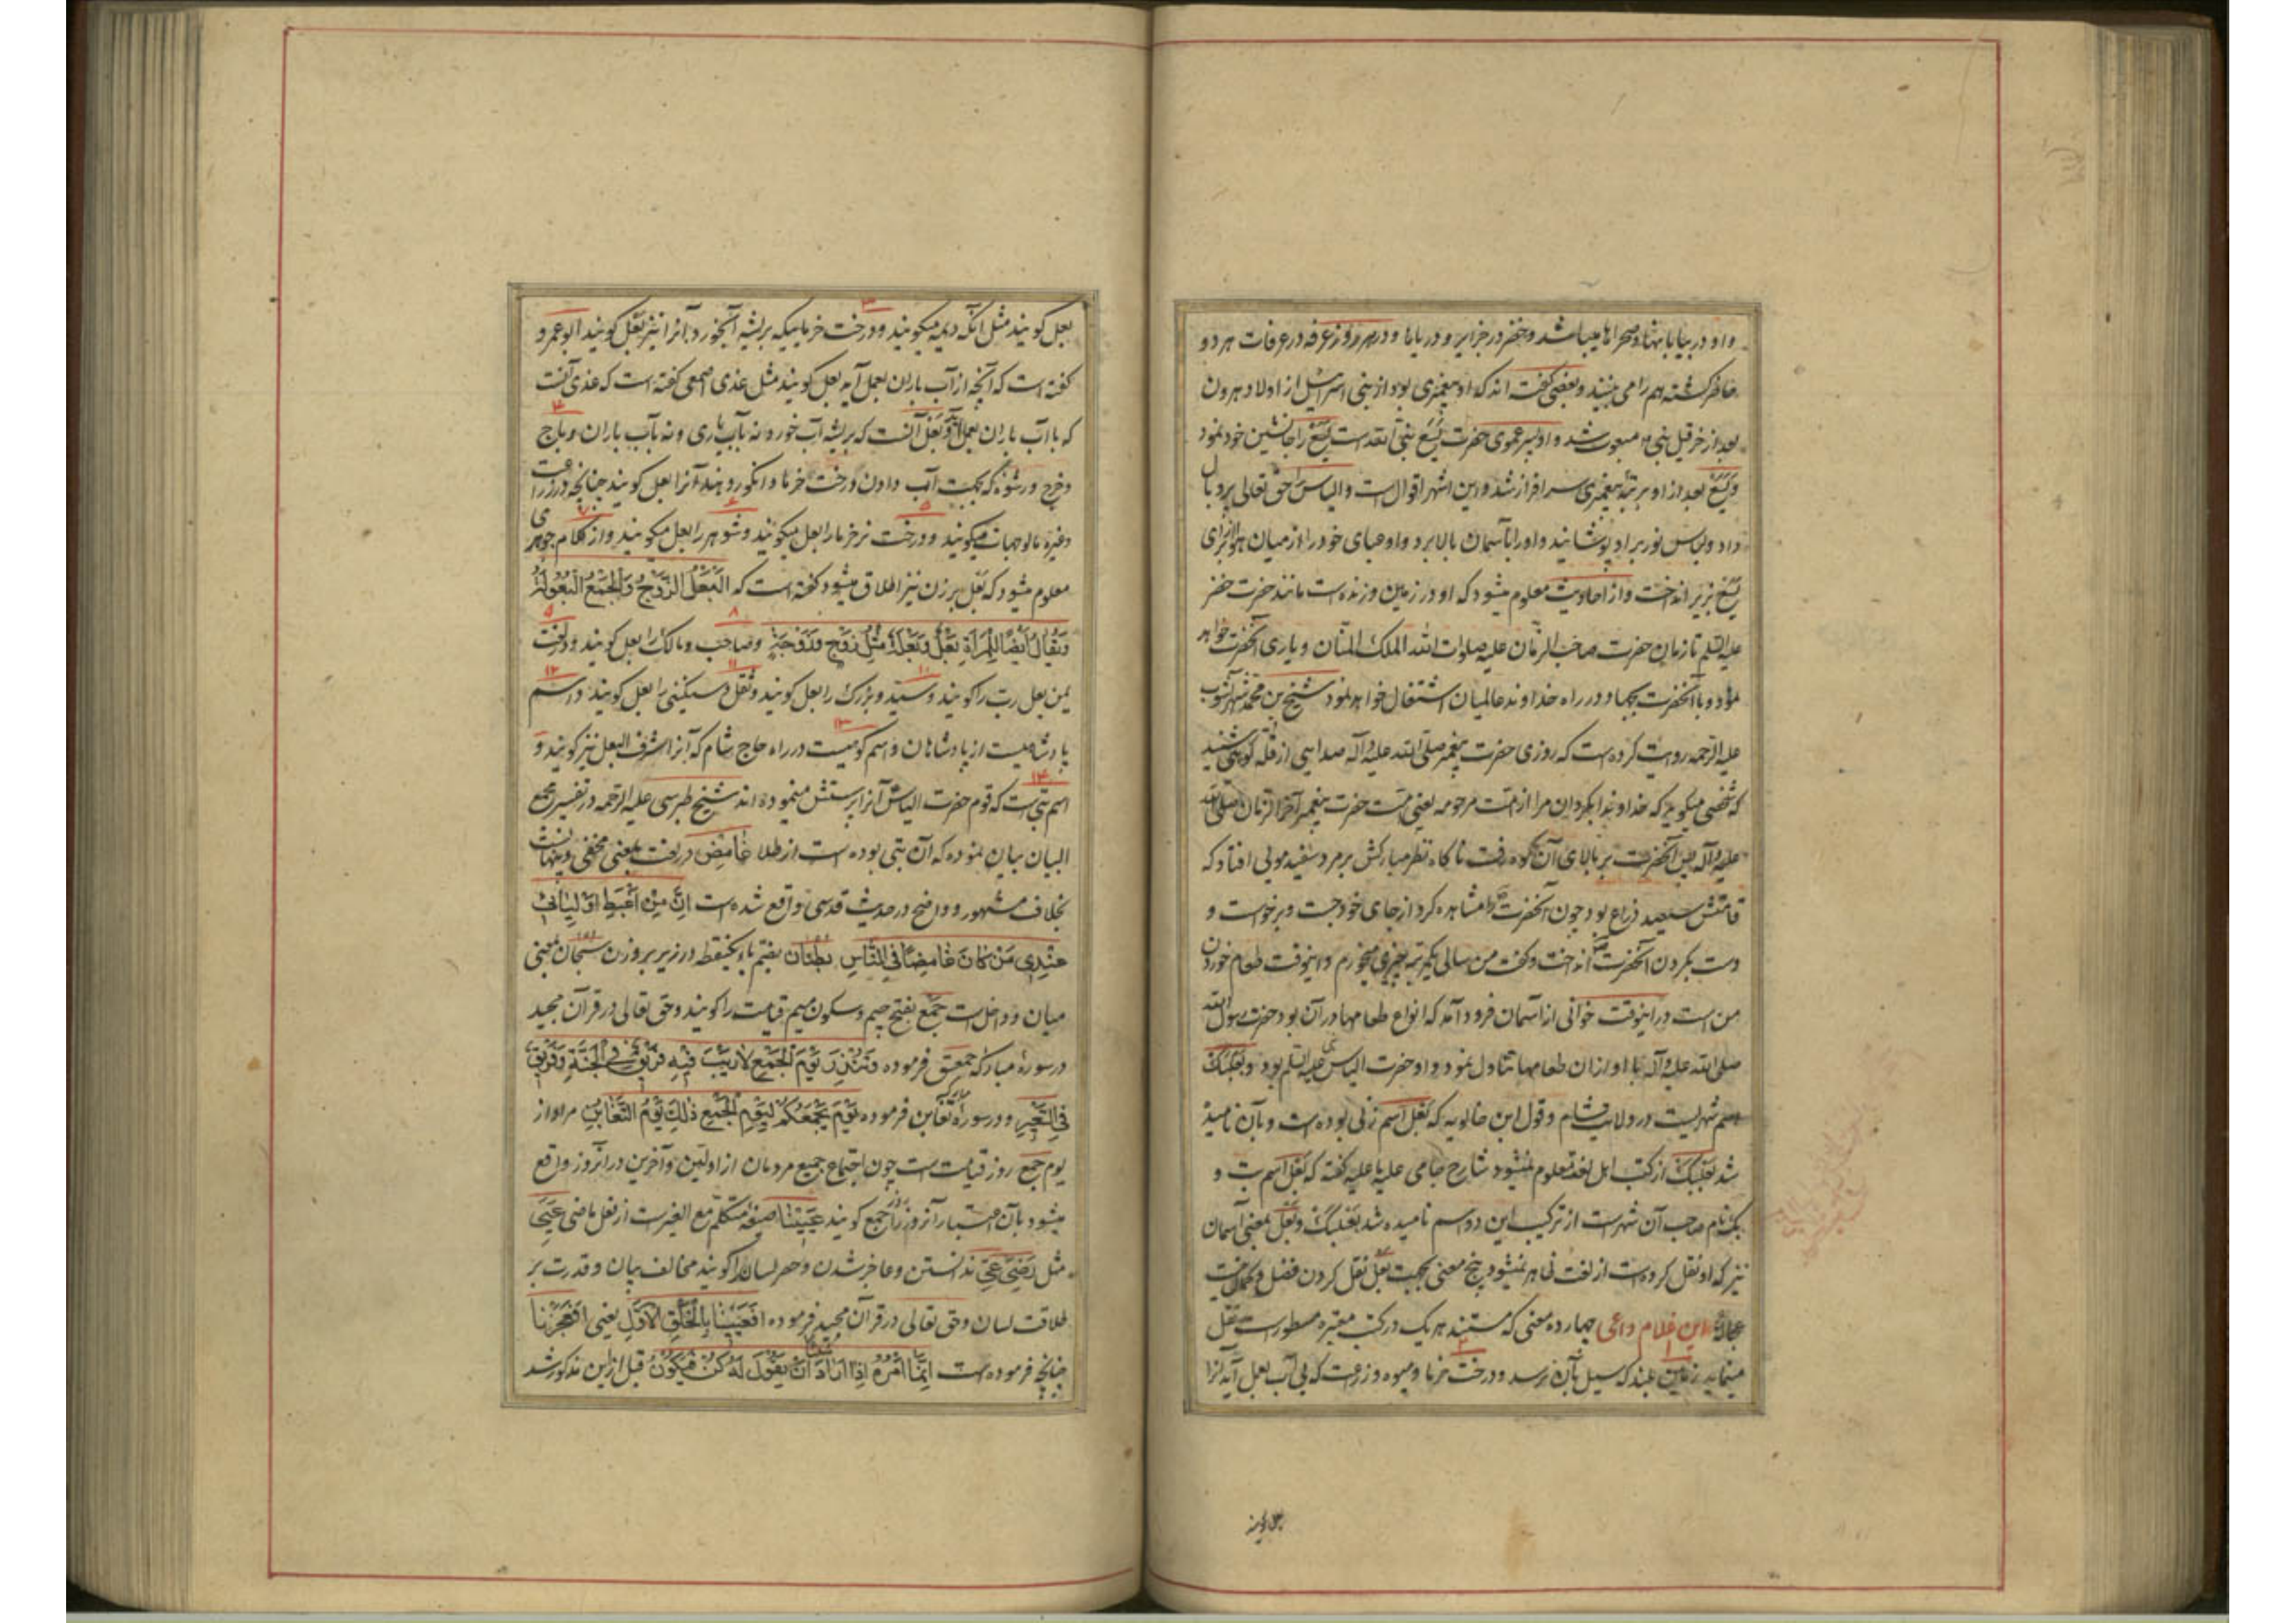 و او در بیابانها و صحراها میباشد و خضر در جزایر و دریاها و در هر روز عرفه در عرفات هر دو
حاضر گشته هم را می بینند و بعضی گفته اند که او پیغمبری بود از بنی اسرائیل از اولاد هرون
بعد از حزقیل نبی مبعوث شد و او پسر عموی حضرت یسع نبی الله است یسع را جانشین خود نمود
و یسع بعد از او برتبهٔ پیغمبری سرافراز شد و این اشهر اقوال است و الیاس حق تعالی پر و بال
داد و لباس نور بر او پوشانید و او را بآسمان بالا برد و او عبای خود را از میان هوا برای
یسع بزیر انداخت و از احادیث معلوم میشود که او در زمین و زنده است مانند حضرت خضر
علیه السلم تا زمان حضرت صاحب الزمان علیه صلوات الله الملک المنان و یاری آنحضرت خواهد
نمود و با آنحضرت بجهاد در راه خداوند عالمیان اشتغال خواهد نمود شیخ بن محمد شهر آشوب
علیه الرحمه روایت کرده است که روزی حضرت پیغمبر صلی الله علیه و آله صدایی از قله کوهی شنید
که شخصی میگوید که خداوندا بگردان مرا از امت مرحومه یعنی امت حضرت پیغمبر آخر الزمان صلی الله
علیه و آله پس آنحضرت بر بالای آن کوه رفت ناگاه نظر مبارکش بر مرد سفید مویی افتاد که
قامتش سیصد ذراع بود چون آنحضرت را مشاهده کرد از جای خود جست و برخواست و
دست بگردن آنحضرت انداخت و گفت من سالی یکمرتبه چیزی میخورم و اینوقت طعام خوردن
من است در اینوقت خوانی از آسمان فرود آمد که انواع طعامها در آن بود حضرت رسول الله
صلی الله علیه و آله با او از آن طعامها تناول نمود و او حضرت الیاس علیه السلم بود و بَعْلَبَکّ
اسم شهریست در ولایت شام و قول ابن خالویه که بعل اسم زنی بوده است و بآن نامیده
شد بعلبک از کتب اهل لغه معلوم نمیشود شارح جامی علیه ما علیه گفته که بعل اسم بت و
بک نام صاحب آن شهر است از ترکیب این دو اسم نامیده شد بعلبک و بعل بمعنی آسمان
نیز که او نقل کرده است از لغت ظاهر نمیشود پنج معنی بجهت بعل نقل کردن فضل و کمال نیست
این غلام داعی چهارده معنی که مستند هر یک در کتب معتبره مسطور است نقل
مینماید زمین بلند که سیل بآن نرسد و درخت خرما و میوه و زراعت که بی آب بعمل آید آنرا
بعل گویند
بعل گویند مثل آنکه دیمه میگویند و درخت خرماییکه بریشه آبخورد آنرا نیز بعل گویند ابو عمرو
گفته است که آنچه از آب باران بعمل آید بعل گویند مثل عذی اصمعی گفته است که عذی آنست
که با آب باران بعمل آید و بعل آنست که بریشه آب خورد نه بآب یاری و نه بآب باران و باج
و خرج و رشوه که بجهت آب دادن درخت خرما و انگور دهند آنرا بعل گویند چنانچه در زراعت
و غیره مالوجهات میگویند و درخت نر خرما را بعل میگویند و شوهر را بعل میگویند و از کلام جوهری
معلوم میشود که بعل بر زن نیز اطلاق میشود گفته است که اَلْبَعْلُ الزَّوْجُ وَالْجَمْعُ الْبُعُولَةُ
وَیُقَالُ اَیْضًا لِلْمَرْأَةِ بَعْلٌ وَبَعْلَةٌ مِثْلُ زَوْجٍ وَزَوْجَةٍ و صاحب و مالک را بعل گویند و در لغت
یمن بعل رب را گویند و سید و بزرگ را بعل گویند و ثقل و سنگینی را بعل گویند و اسم
پادشاهیست از پادشاهان و اسم کوهیست در راه حاج شام که آنرا شرف البعل نیز گویند و
اسم بتیست که قوم حضرت الیاس آنرا پرستش مینموده اند شیخ طبرسی علیه الرحمه در تفسیر مجمع
البیان بیان نموده که آن بتی بوده است از طلا غامِض در لغت بمعنی مخفی و پنهانست
بخلاف مشهور و واضح در حدیث قدسی واقع شده است اِنَّ مِنْ اَغْبَطِ اَوْلِیٰائی
عِنْدِی مَنْ کٰانَ غٰامِضًا فِی النّٰاسِ بُطنان بضم باء یکنقطه در زیر بر وزن سبحان بمعنی
میان و داخل است جمع بفتح جیم و سکون میم قیامت را گویند و حق تعالی در قرآن مجید
در سورهٔ مبارکه حمعسق فرموده وَتُنْذِرَ یَوْمَ الْجَمْعِ لاٰ رَیْبَ فِیهِ فَرِیقٌ فِی الْجَنَّةِ وَفَرِیقٌ
فِی السَّعِیرِ و در سوره مبارکه تغابن فرموده یَوْمَ یَجْمَعُکُمْ لِیَوْمِ الْجَمْعِ ذٰلِکَ یَوْمُ التَّغٰابُنِ مراد از
یوم جمع روز قیامت است چون اجتماع جمیع مردمان از اولین و آخرین در آنروز واقع
میشود بآن اعتبار آنروز را روز جمع گویند عَیینا صیغهٔ متکلم مع الغیر است از فعل ماضی عَیِیَ
مثل رَضِیَ عِیّ ندانستن و عاجز شدن و حصر لسان را گویند مخالف بیان و قدرت بر
طلاقت لسان و حق تعالی در قرآن مجید فرموده اَفَعَیِینٰا بِالْخَلْقِ الْاَوَّلِ یعنی افعجزنا
چنانچه فرموده است اِنَّمٰا اَمْرُهُ اِذٰا اَرٰادَ شَیْئًا اَنْ یَقُولَ لَهُ کُنْ فَیَکُونُ قبل از این مذکور شد